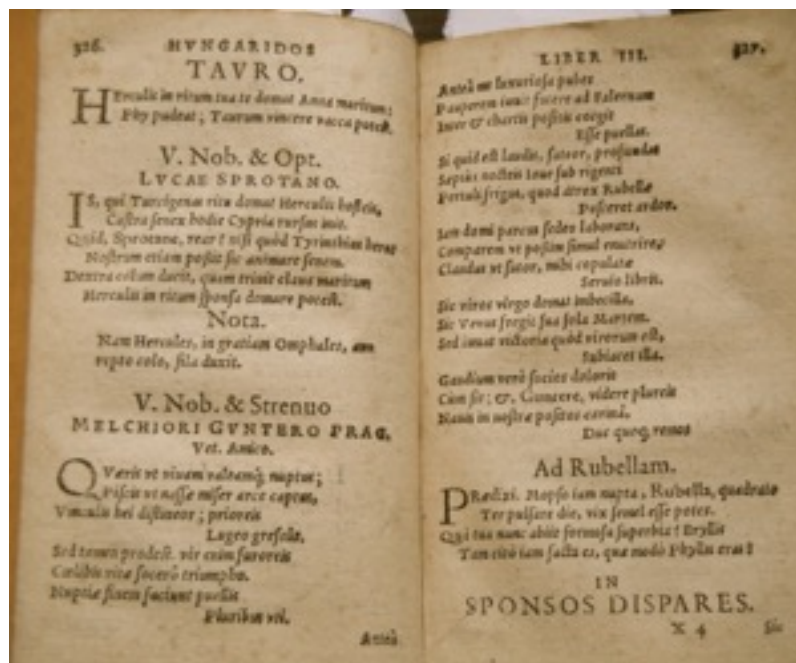 326. HVNGARIDOS
TAVRO.
HErculis in ritum tua te domat Anna maritum:
Phy pudeat; Taurum vincere vacca potest.
V. Nob. & Opt.
LVCAE SPROTANO.
IS, qui Turcigenas ritu domat Herculis hosteis,
Castra senex hodie Cypria rursus init.
Quid, Sprotane, rear? nisi quòd Tyrinthius heros
Nostrum etiam possit sic animare senem.
Dextra colum ducit, quam triuit claua maritum
Herculis in ritum sponsa domare potest.
Nota.
Nam Hercules, in gratiam Omphales, arrepto colo, fila duxit.
V. Nob. & Strenuo
MELCHIORI GVNTERO PRAG.
Vet. Amico.
QVæris vt viuam valeamq; nuptus;
Piscis vt nasse miser arce captus,
Vinculis hei distineor; prioreis
Lugeo gressus.
Sed tamen prodest. vir enim furoreis
Cœlibis vitæ socerò triumpho.
Nuptiæ finem faciunt puellis
Pluribus vti.
Anteà
LIBER III. 327.
Anteà me luxuriosa pubes
Pauperem iunit facere ad Falernum
Inter & chartis positis coegit
Esse puellas.
Si quid est laudis, fateor, profundas
Sæpius nocteis Ioue sub rigenti
Pertuli frigus, quod atrox Rubellæ
Posceret ardor.
Iam domi parcus sedeo laborans,
Comparem vt possim simul enutrire,
Claudar vt sutor, mihi copulatæ
Seruio libris.
Sic viros virgo domat imbecilla,
Sic Venus fregit sua sola Martem.
Sed iuuat victoria quòd virorum est,
Subiacet illa.
Gaudium verò socies doloris
Cùm sic; &, Guntere, videre plureis
Nauis in nostræ positos carinâ,
Duc quoq; remos
Ad Rubellam.
PRædixi. Mopso iam nupta, Rubella, quadrato
Ter pulsare die, vix semel esse potes.
Qui tua nunc abiit formosa superbia? Eryllis
Tam citò iam facta es, quæ modò Phyllis eras?
IN
SPONSOS DISPARES.
X 4 Sic